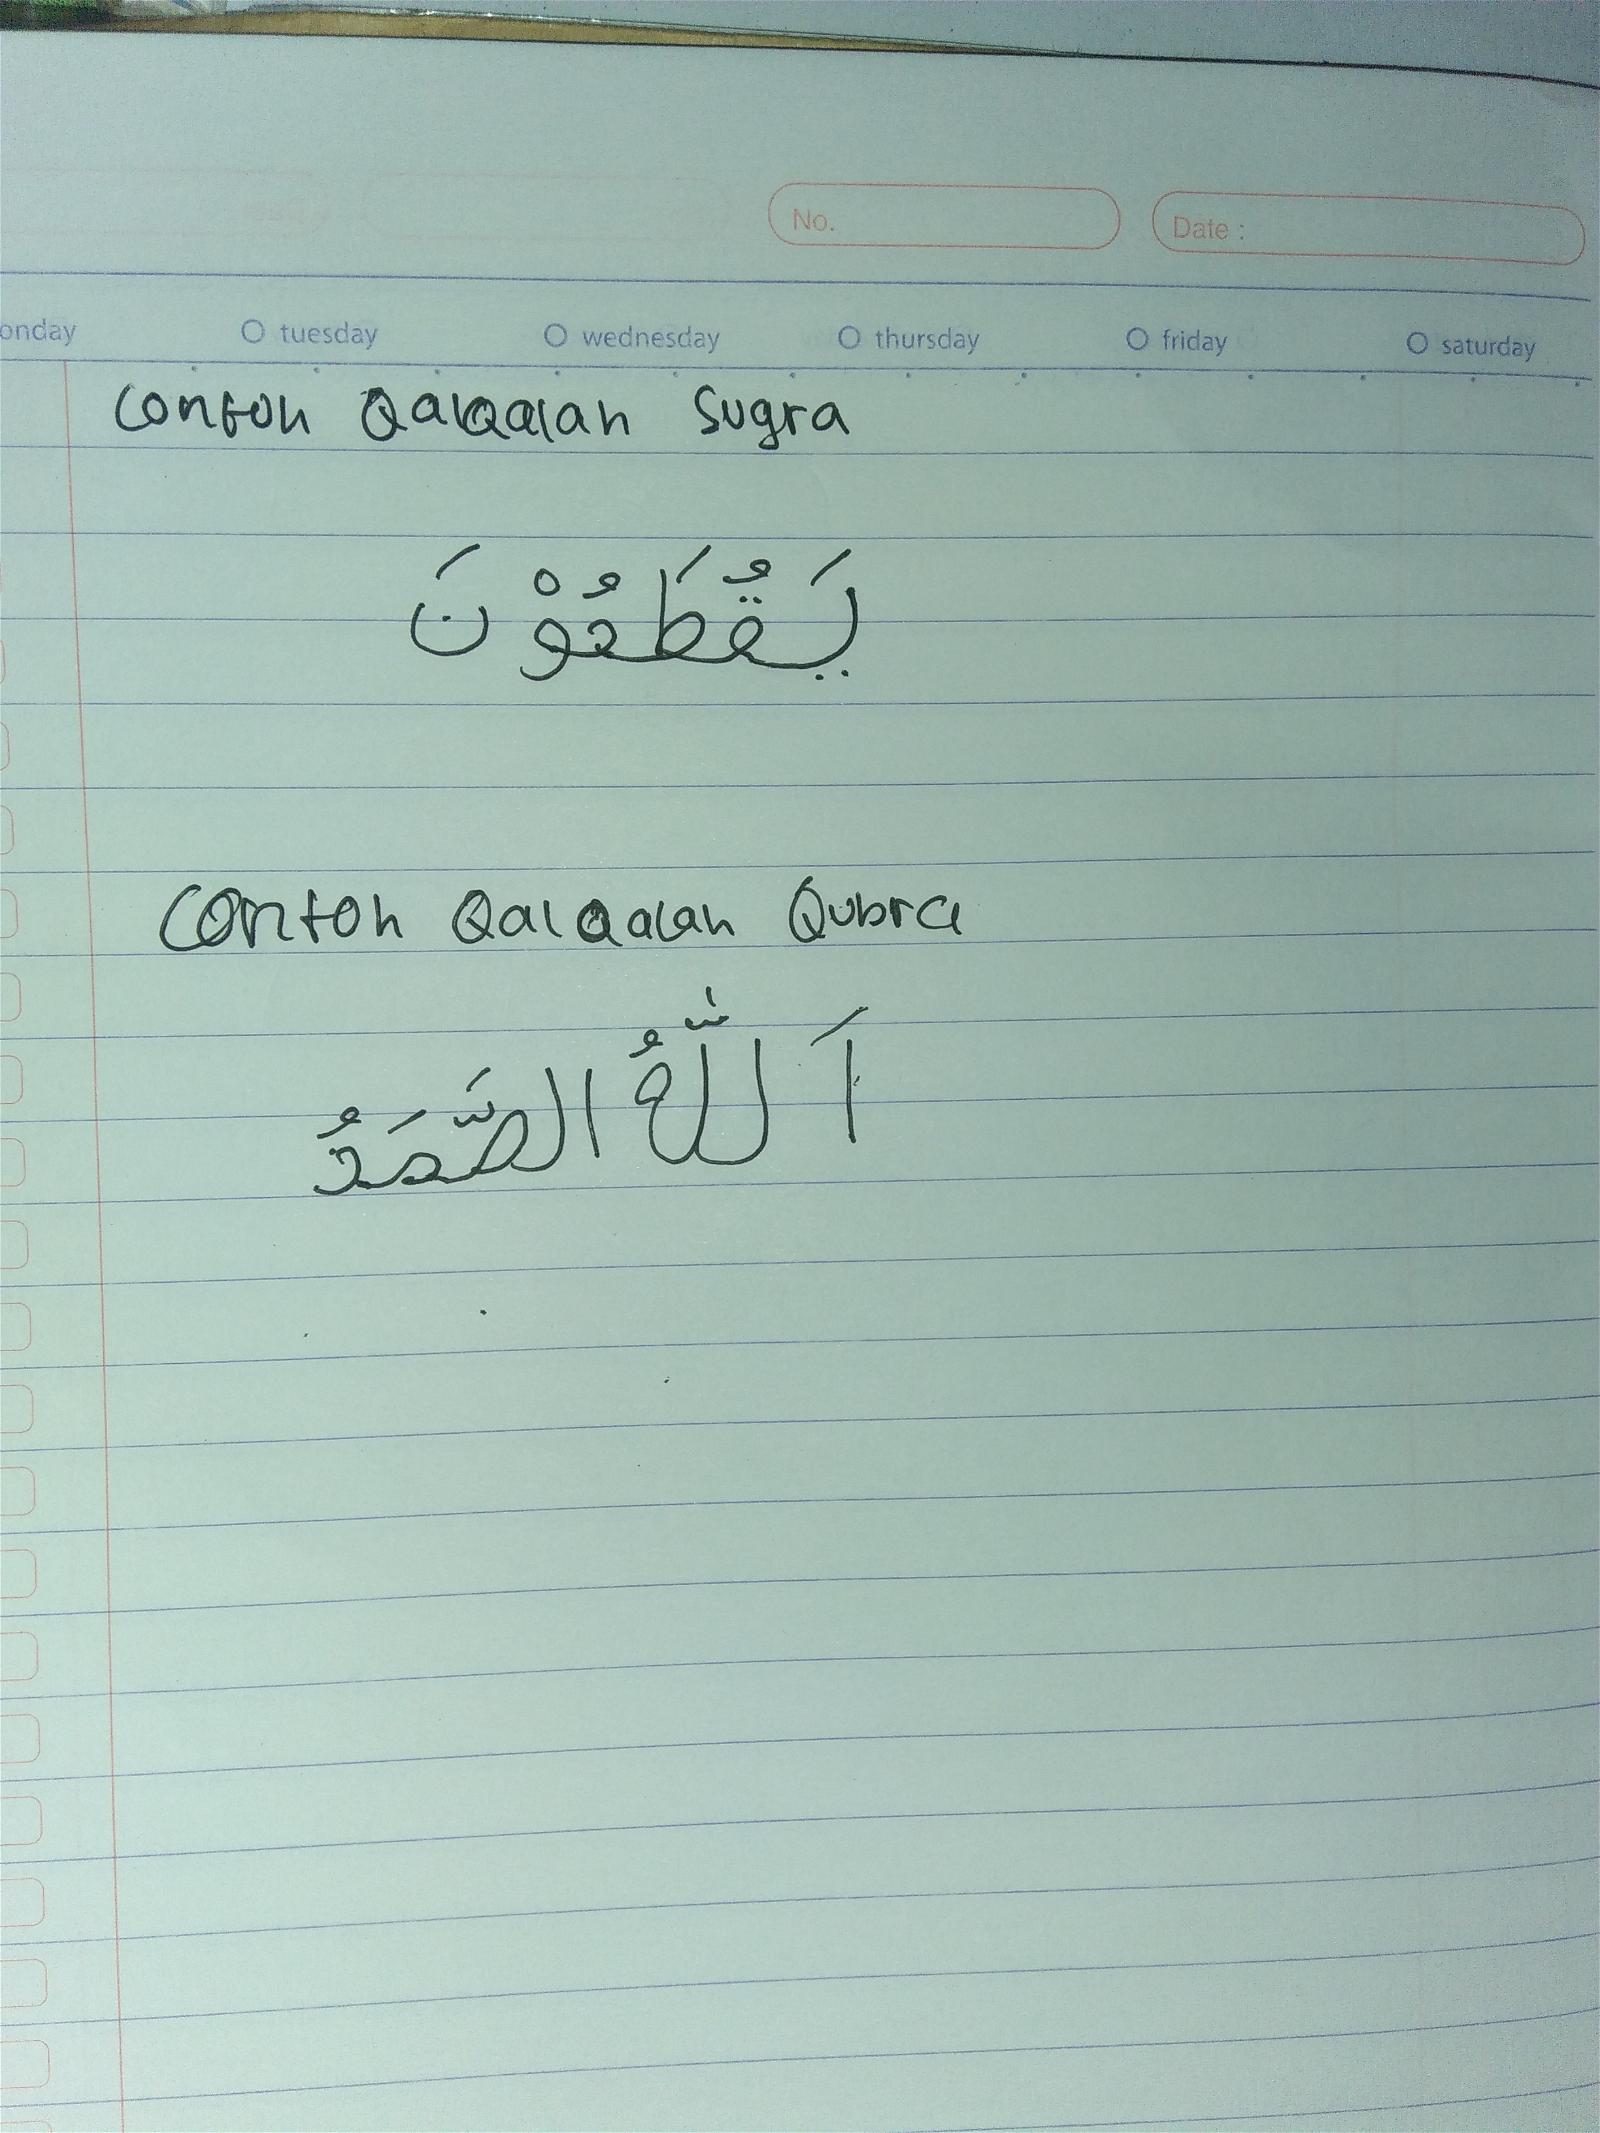 No.
Date :
onday tuesday wednesday thursday friday saturday
Contoh Qalqalah Sugra
يَقُطَعُوْنَ
Contoh Qalqalah Qubra
اَللّٰهُ الصَّمَدُ